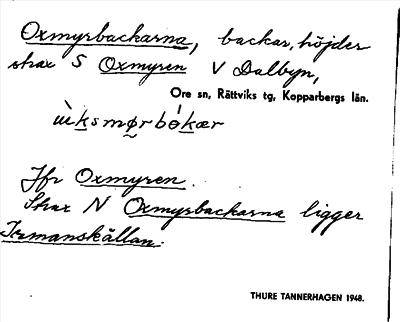 Oxmyrbackarna, backar, höjder
strax S Oxmyren V Dalbyn,
Ore sn, Rättviks tg, Kopparbergs län.
Jfr Oxmyren.
Strax N Oxmyrbackarna ligger
THURE TANNERHAGEN 1948.